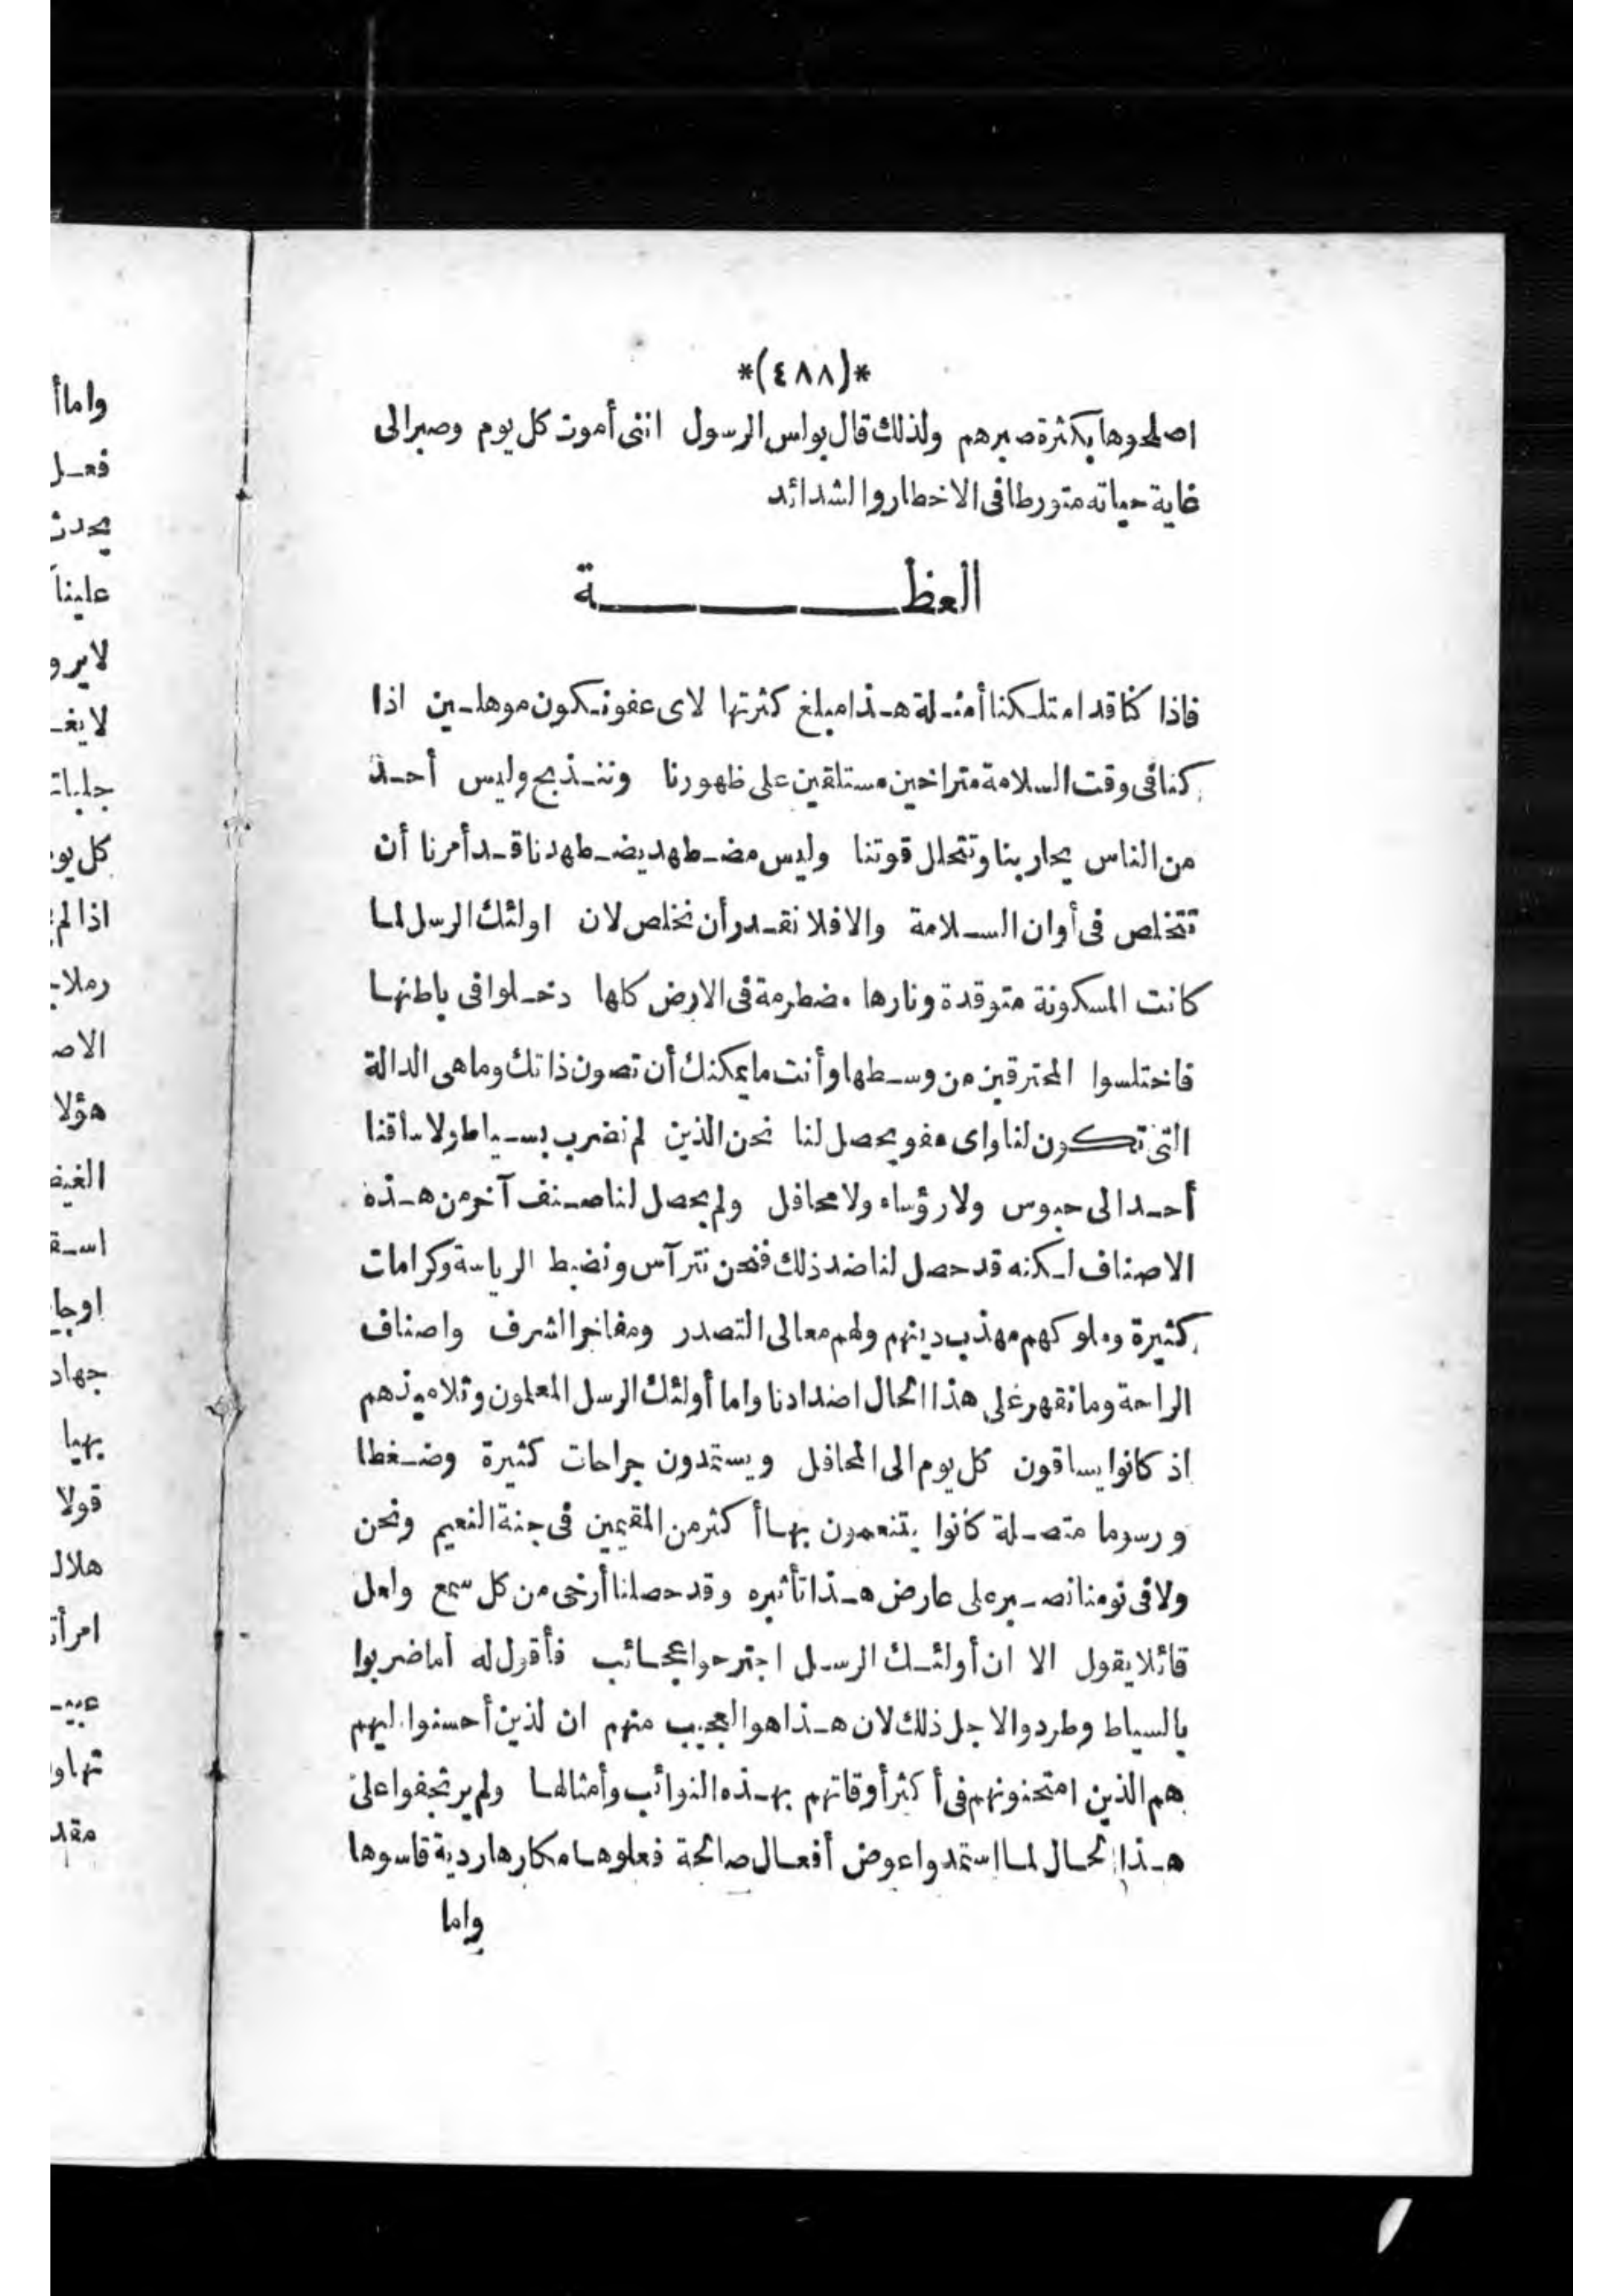 *(٤٨٨)*
اصلحوها بكثرة صبرهم ولذلك قال بولس الرسول اننى أموت كل يوم وصبر الى
غاية حياته متورطا فى الاخطار والشدائد
العظـــــــة
فاذا كنا قد امتلـكنا أمثـلة هـذا مبلغ كثرتها لاى عفو نـكون موهلـين اذا
كنا فى وقت السلامة متراخين مستلقين على ظهورنا وننـذبح وليس أحـد
من الناس يحاربنا وتتحلل قوتنا وليس مضـطهد يضـطهدنا قـد أمرنا أن
نتخلص فى أوان السـلامة والا فلا نقـدر أن نخلص لان اولئك الرسل لمـا
كانت المسكونة متوقدة ونارها مضطرمة فى الارض كلها دخـلوا فى باطنهـا
فاختلسوا المحترقين من وسـطها وأنت ما يمكنك أن تصون ذاتك وما هى الدالة
التى تكـون لنا واى عفو يحصل لنا نحن الذين لم نضرب بسـياط ولا ساقنا
أحـد الى حبوس ولا رؤساء ولا محافل ولم يحصل لنا صـنف آخر من هـذه
الاصناف لـكنه قد حصل لنا ضد ذلك فنحن نترآس ونضبط الرياسة وكرامات
كثيرة وملوكهم مهذب دينهم ولهم معالى التصدر ومفاخر الشرف واصناف
الراحة وما نقهر على هذا الحال اضدادنا واما أولئك الرسل المعلمون وتلاميذهم
اذ كانوا يساقون كل يوم الى المحافل ويستمدون جراحات كثيرة وضـغطا
ورسوما متصـلة كانوا يتنعمون بهـا أكثر من المقيمين فى جنة النعيم ونحن
ولا فى نومنا نصـبر على عارض هـذا تأثيره وقد حصلنا أرخى من كل سمع ولعل
قائلا يقول الا ان أولئـك الرسـل اجترحوا عجـائب فأقول له أما ضربوا
بالسياط وطردوا لاجل ذلك لان هـذا هو العجيب منهم ان لذين أحسنوا اليهم
هم الذين امتحنونهم فى أكثر أوقاتهم بهـذه النوائب وأمثالهـا ولم يرتجفوا على
هـذا الحـال لمـا استمدوا عوض أفعـال صالحة فعلوهـا مكارها ردية قاسوها
واما
واما أ
فعـل
يحدث
علينا
لا يرو
لا يغـ
كل يو
اذا لم
الاص
هؤلا
قولا
هلال